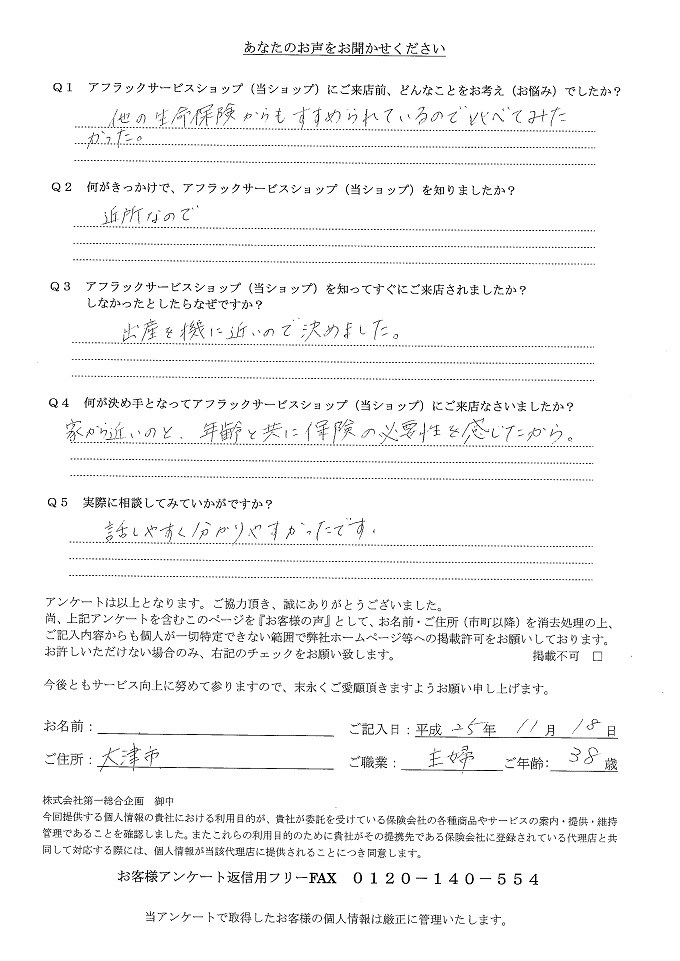 あなたのお声をお聞かせください
Q1 アフラックサービスショップ（当ショップ）にご来店前、どんなことをお考え（お悩み）でしたか？
他の生命保険からもすすめられているので比べてみた
かった。
Q2 何がきっかけで、アフラックサービスショップ（当ショップ）を知りましたか？
近所なので
Q3 アフラックサービスショップ（当ショップ）を知ってすぐにご来店されましたか？
しなかったとしたらなぜですか？
出産を機に近いので決めました。
Q4 何が決め手となってアフラックサービスショップ（当ショップ）にご来店なさいましたか？
家から近いのと、年齢と共に保険の必要性を感じたから。
Q5 実際に相談してみていかがですか？
話しやすく分かりやすかったです.
アンケートは以上となります。ご協力頂き、誠にありがとうございました。
尚、上記アンケートを含むこのページを『お客様の声』として、お名前・ご住所（市町以降）を消去処理の上、
ご記入内容からも個人が一切特定できない範囲で弊社ホームページ等への掲載許可をお願いしております。
お許しいただけない場合のみ、右記のチェックをお願い致します。 掲載不可 □
今後ともサービス向上に努めて参りますので、末永くご愛顧頂きますようお願い申し上げます。
お名前： ご記入日：平成 25年 11月 18日
ご住所：大津市 ご職業： 主婦 ご年齢： 38歳
株式会社第一総合企画 御中
今回提供する個人情報の貴社における利用目的が、貴社が委託を受けている保険会社の各種商品やサービスの案内・提供・維持
管理であることを確認しました。またこれらの利用目的のために貴社がその提携先である保険会社に登録されている代理店と共
同して対応する際には、個人情報が当該代理店に提供されることにつき同意します。
お客様アンケート返信用フリーFAX 0120－140－554
当アンケートで取得したお客様の個人情報は厳正に管理いたします。